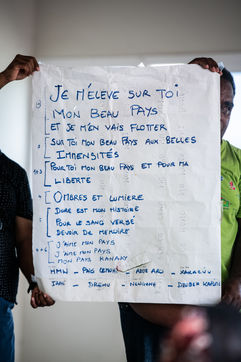 ① JE M'ÉLEVE SUR TOI
MON BEAU PAYS
ET JE M'EN VAIS FLOTTER
SUR TOI MON BEAU PAYS AUX BELLES
IMMENSITÉS
POUR TOI MON BEAU PAYS ET POUR MA
LIBERTÉ
OMBRES ET LUMIERE
DURE EST MON HISTOIRE
POUR LE SANG VERSÉ
DEVOIR DE MEMOIRE
J'AIME MON PAYS
J'AIME MON PAYS
MON PAYS KANAKY
HMW - PAICI CEMUHI - AJIE ARO - XARACUU
IAAI - DREHU - NENGONE - DJUBEA KAPONE